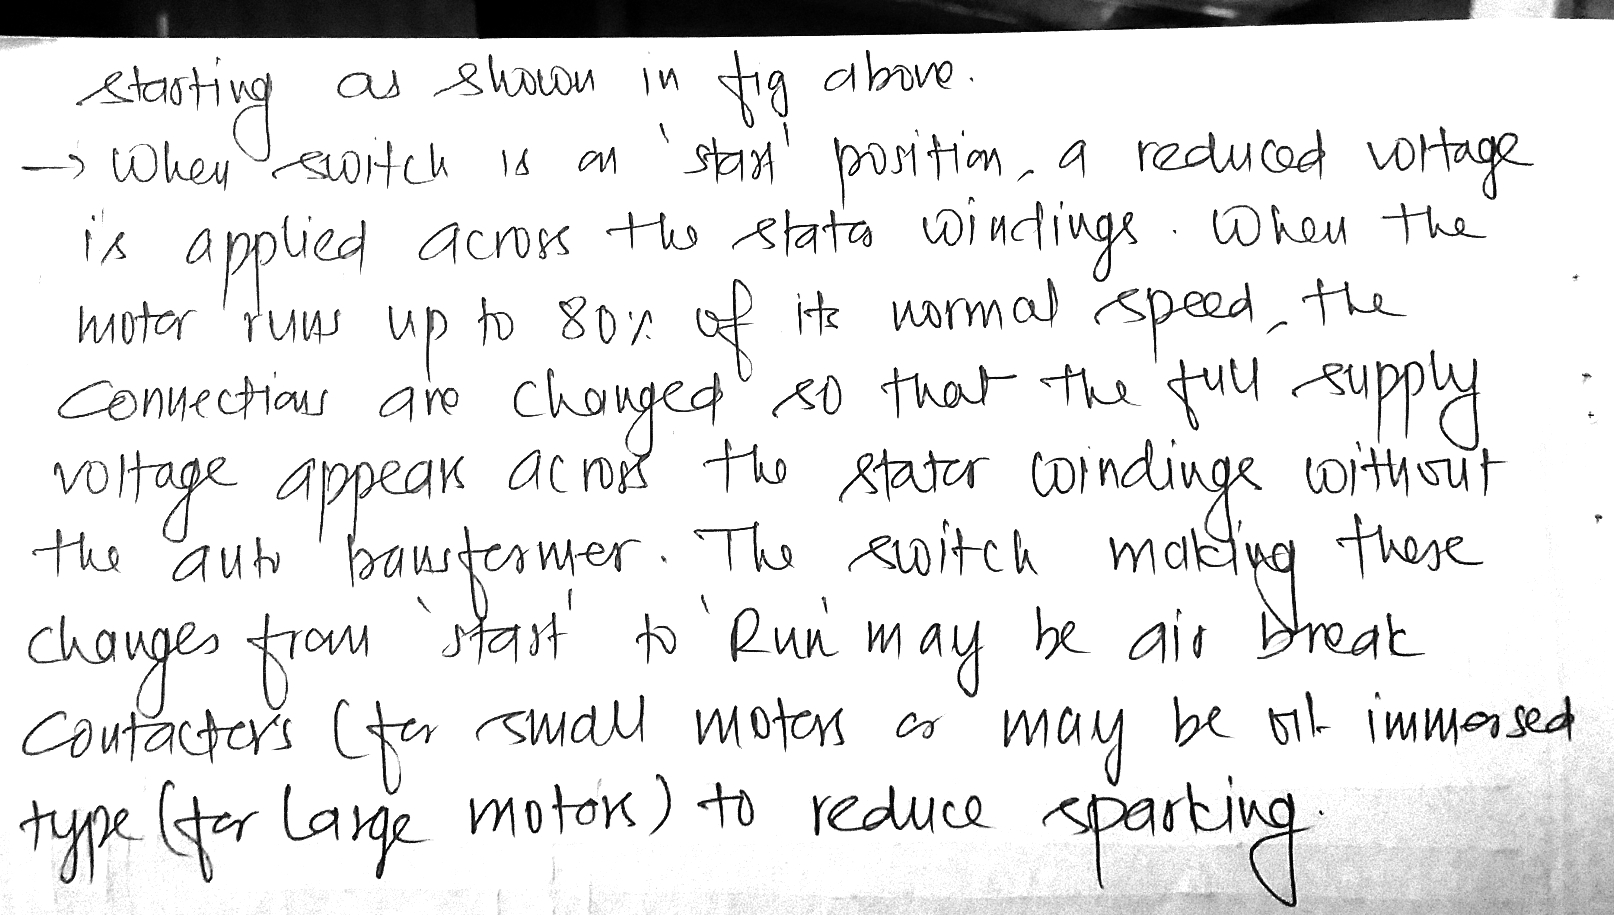 starting as shown in fig above.
→ When switch is on 'start' position, a reduced voltage
is applied across the stator windings. When the
motor runs up to 80% of its normal speed, the
Connections are changed so that the full supply
voltage appears across the stator windings without
the auto transformer. The switch making these
changes from 'start' to 'Run' may be air break
Contactors (for small motors or may be oil immersed
type (for large motors) to reduce sparking.